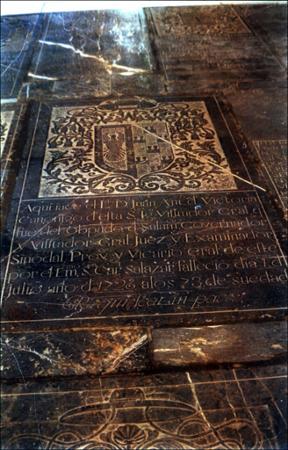 Aqui iace el D. D. Juan Ant. de Victoria
Canonigo desta S. Ig. Vissitador Gral
deste Obispado Governador
y Vissitador Gral Juez y Examin.
Sinodal Prov. y Vicario Gral
por el Em. S. Car. Salazar Fallecio dia
Julio año d 1728 a los 73 de su edad
Requiescat in pace